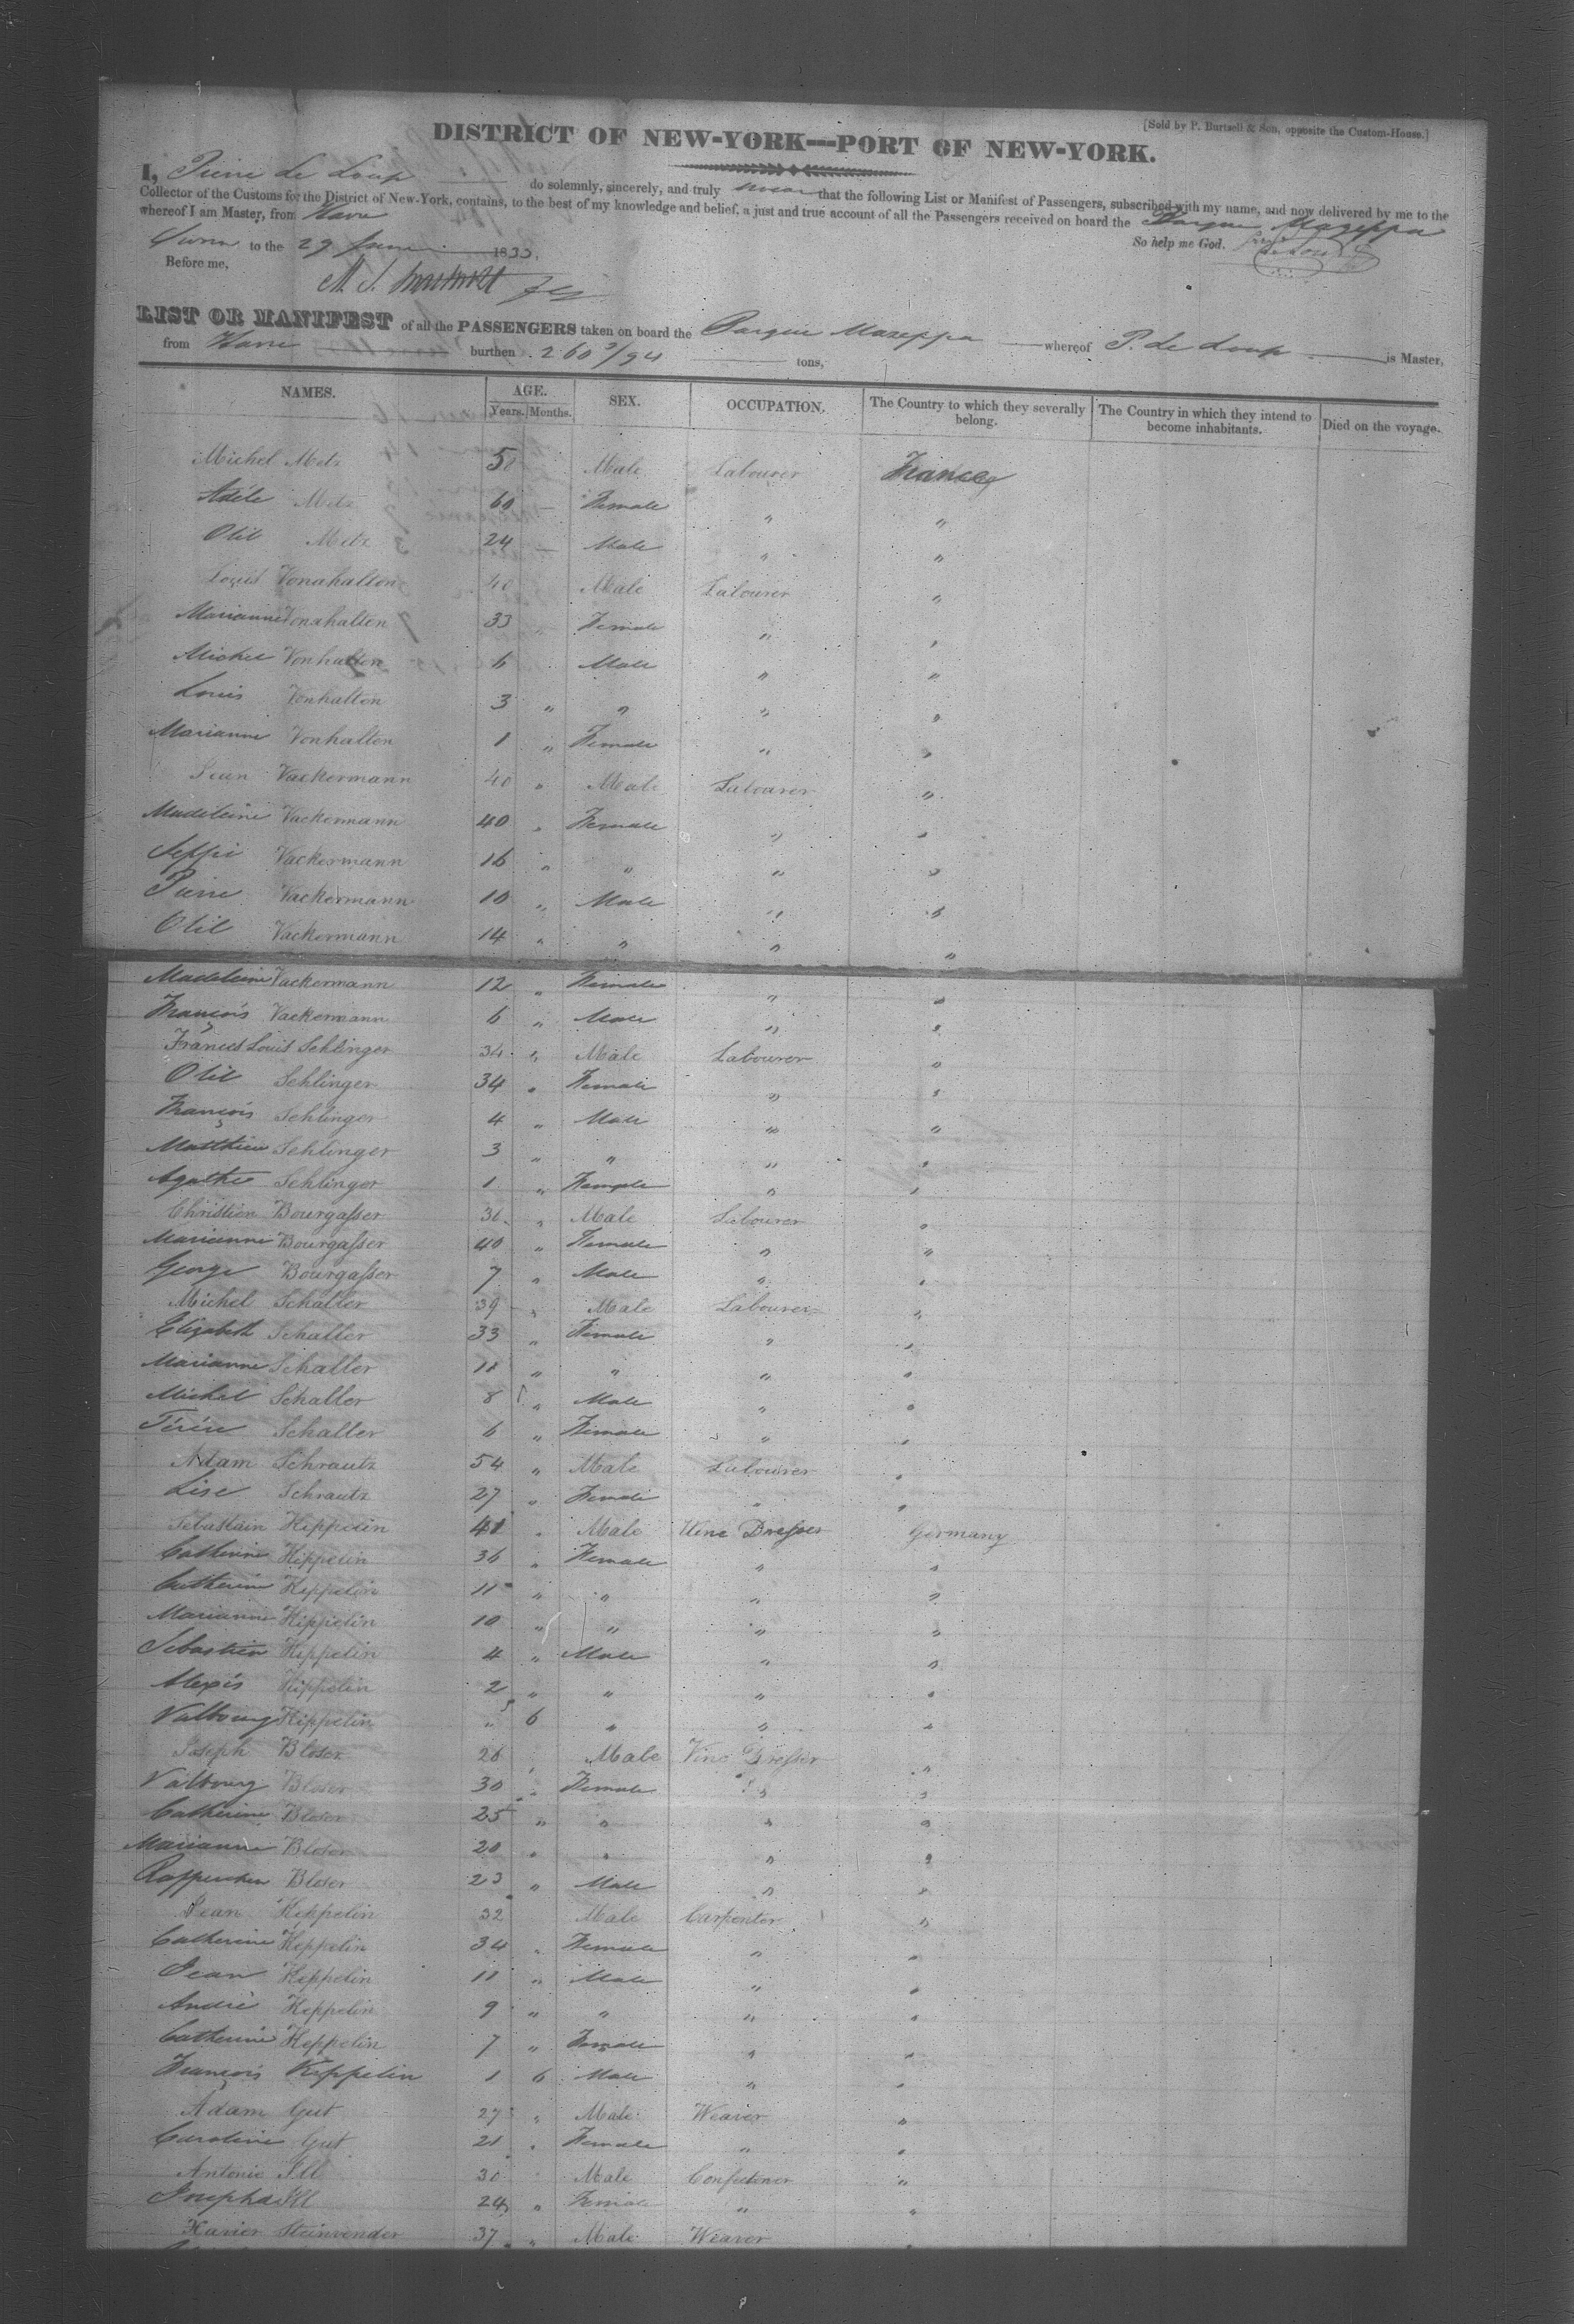 [Sold by P. Burtsell & Son, opposite the Custom-House.]
DISTRICT OF NEW-YORK—PORT OF NEW-YORK.
I, Pierre Le Loup do solemnly, sincerely, and truly swear that the following List or Manifest of Passengers, subscribed with my name, and now delivered by me to the
Collector of the Customs for the District of New-York, contains, to the best of my knowledge and belief, a just and true account of all the Passengers received on board the Barque Mazeppa
whereof I am Master, from Havre
Sworn to the 29 June 1833. So help me God.
Before me,
LIST OR MANIFEST of all the PASSENGERS taken on board the Barque Mazeppa whereof P. Le Loup is Master,
from Havre burthen 260 5/94 tons,
NAMES. AGE. Years. Months. SEX. OCCUPATION. The Country to which they severally belong. The Country in which they intend to become inhabitants. Died on the voyage.
Michel Metz 50 Male Labourer France
Adéle Metz 60 Female " "
Otil Metz 24 Male " "
Louis Vonahalten 40 Male Labourer "
Marianne Vonahalten 33 " Female " "
Michel Vonhalten 6 Male " "
Louis Vonhalten 3 " " " "
Marianne Vonhalten 1 " Female " "
Jean Vackermann 40 " Male Labourer "
Madeleine Vackermann 40 " Female " "
Seppi Vackermann 16 " " " "
Pierre Vackermann 10 " Male " "
Otil Vackermann 14 " " " "
Madeleine Vackermann 12 " Female " "
François Vackermann 6 " Male " "
Francis Louis Schlinger 34 " Male Labourer "
Otil Schlinger 34 " Female " "
François Schlinger 4 " Male " "
Matthieu Schlinger 3 " " " "
Agathe Schlinger 1 " Female " "
Christien Bourgasser 36 " Male Labourer "
Marianne Bourgasser 40 " Female " "
George Bourgasser 7 " Male " "
Michel Schaller 39 " Male Labourer "
Elizabeth Schaller 33 " Female " "
Marianne Schaller 11 " " " "
Michel Schaller 8 " Male " "
Térése Schaller 6 " Female " "
Adam Schrautz 54 " Male Labourer "
Lise Schrautz 27 " Female " "
Sebastain Kippelin 41 " Male Vine Dresser Germany
Catherine Kippelin 36 " Female " "
Catherine Kippelin 11 " " " "
Marianne Kippelin 10 " " " "
Sebastien Kippelin 4 " Male " "
Alexis Kippelin 2 " " " "
Valbourg Kippelin " 6 " " "
Joseph Bloser 26 Male Vine Dresser "
Valbourg Bloser 30 " Female " "
Catherine Bloser 25 " " " "
Marianne Bloser 20 " " " "
Bloser 23 " Male " "
Jean Keppelin 32 Male Carpenter "
Catherine Keppelin 34 " Female " "
Jean Keppelin 11 " Male " "
André Keppelin 9 " " " "
Catherine Keppelin 7 " Female " "
François Kippelin 1 6 Male " "
Adam Gut 27 " Male Weaver "
Caroline Gut 21 " Female " "
Antonie Ill 30 Male "
Josepha Ill 24 " Female " "
Xavier Steinvender 37 " Male Weaver "